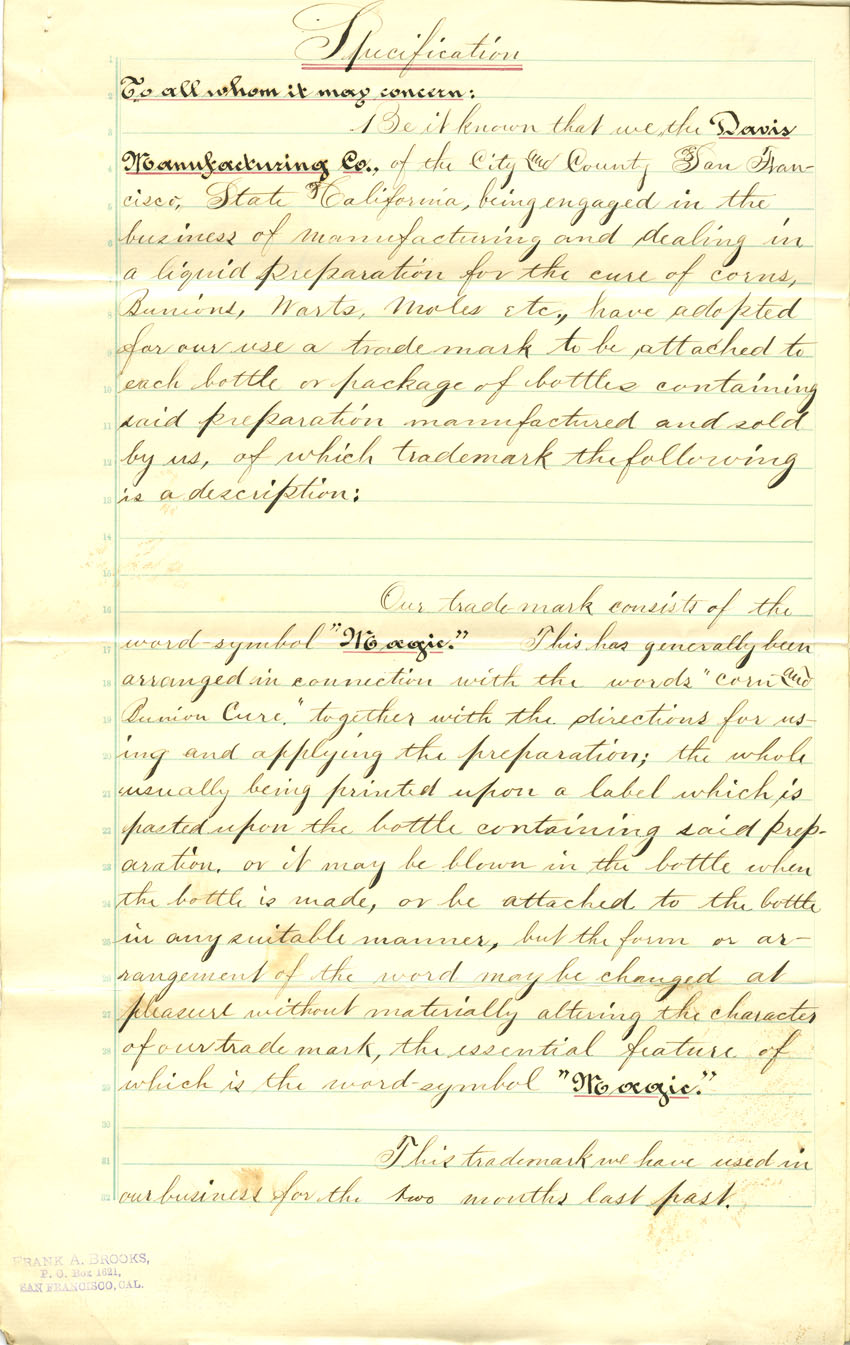 Specification
To all whom it may concern:
Be it known that we, the Davis
Manufacturing Co., of the City and County of San Fran-
cisco, State of California, being engaged in the
business of manufacturing and dealing in
a liquid preparation for the cure of corns,
Bunions, Warts, Moles etc., have adopted
for our use a trade mark to be attached to
each bottle or package of bottles containing
said preparation manufactured and sold
by us, of which trademark the following
is a description:
Our trade-mark consists of the
word-symbol "Magic." This has generally been
arranged in connection with the words "Corn and
Bunion Cure." together with the directions for us-
ing and applying the preparation; the whole
usually being printed upon a label which is
pasted upon the bottle containing said prep-
aration. or it may be blown in the bottle when
the bottle is made, or be attached to the bottle
in any suitable manner, but the form or ar-
rangement of the word may be changed at
pleasure without materially altering the character
of our trade mark, the essential feature of
which is the word-symbol "Magic."
This trademark we have used in
our business for the two months last past.
FRANK A. BROOKS,
P. O. Box 1621,
SAN FRANCISCO, CAL.